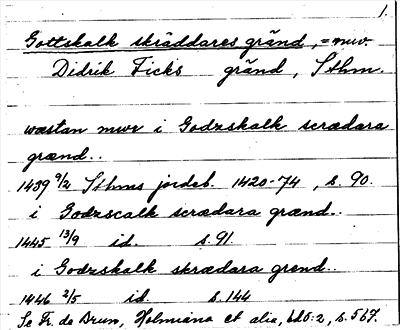 1.
Gottskalk skräddares gränd, = nuv.
Didrik Ficks gränd, Sthm.
wæstan mwr i Godzskalk scrædara
grænd..
1439 9/2 Sthms jordeb. 1420-74, s. 90.
i Godzscalk scrædara grænd..
1445 13/9 id. s. 91
i Godzskalk skrædara grend..
1446 2/5 id. s. 144
Se Fr. de Brun, Holmiana et alia, bd 0:2, s. 567.